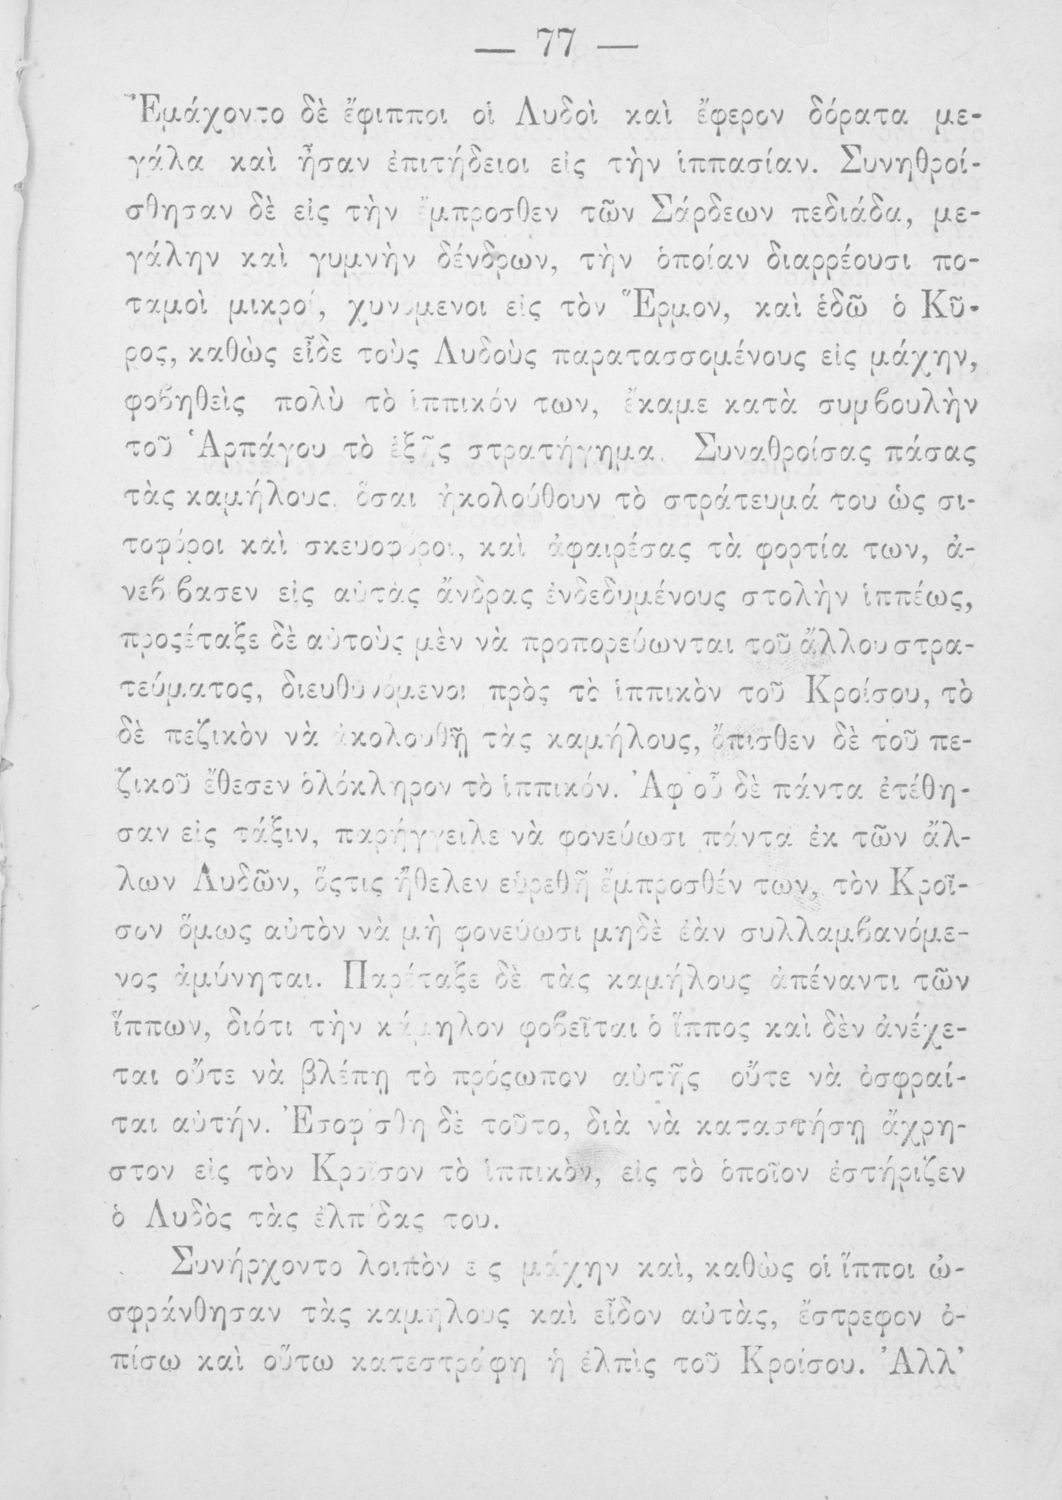 — 77 —
Ἐμάχοντο δὲ ἔφιπποι οἱ Λυδοὶ καὶ ἔφερον δόρατα με-
γάλα καὶ ἦσαν ἐπιτήδειοι εἰς τὴν ἱππασίαν. Συνηθροί-
σθησαν δὲ εἰς τὴν ἔμπροσθεν τῶν Σάρδεων πεδιάδα, με-
γάλην καὶ γυμνὴν δένδρων, τὴν ὁποίαν διαρρέουσι πο-
ταμοὶ μικροί, χυνόμενοι εἰς τὸν Ἕρμον, καὶ ἐδῶ ὁ Κῦ-
ρος, καθὼς εἶδε τοὺς Λυδοὺς παρατασσομένους εἰς μάχην,
φοβηθεὶς πολὺ τὸ ἱππικόν των, ἔκαμε κατὰ συμβουλὴν
τοῦ Ἁρπάγου τὸ ἑξῆς στρατήγημα. Συναθροίσας πάσας
τὰς καμήλους, ὅσαι ἠκολούθουν τὸ στράτευμά του ὡς σι-
τοφόροι καὶ σκευοφόροι, καὶ ἀφαιρέσας τὰ φορτία των, ἀ-
νεβίβασεν εἰς αὐτὰς ἄνδρας ἐνδεδυμένους στολὴν ἱππέως,
προςέταξε δὲ αὐτοὺς μὲν νὰ προπορεύωνται τοῦ ἄλλου στρα-
τεύματος, διευθυνόμενοι πρὸς τὸ ἱππικὸν τοῦ Κροίσου, τὸ
δὲ πεζικὸν νὰ ἀκολουθῇ τὰς καμήλους, ὄπισθεν δὲ τοῦ πε-
ζικοῦ ἔθεσεν ὁλόκληρον τὸ ἱππικόν. Ἀφ' οὗ δὲ πάντα ἐτέθη-
σαν εἰς τάξιν, παρήγγειλε νὰ φονεύωσι πάντα ἐκ τῶν ἄλ-
λων Λυδῶν, ὅςτις ἤθελεν εὑρεθῆ ἔμπροσθέν των, τὸν Κροῖ-
σον ὅμως αὐτὸν νὰ μὴ φονεύωσι μηδὲ ἐὰν συλλαμβανόμε-
νος ἀμύνηται. Παρέταξε δὲ τὰς καμήλους ἀπέναντι τῶν
ἵππων, διότι τὴν κάμηλον φοβεῖται ὁ ἵππος καὶ δὲν ἀνέχε-
ται οὔτε νὰ βλέπῃ τὸ πρόςωπον αὐτῆς οὔτε νὰ ὀσφραί-
ται αὐτήν. Ἐσοφίσθη δὲ τοῦτο, διὰ νὰ καταστήσῃ ἄχρη-
στον εἰς τὸν Κροῖσον τὸ ἱππικὸν, εἰς τὸ ὁποῖον ἐστήριζεν
ὁ Λυδὸς τὰς ἐλπίδας του.
Συνήρχοντο λοιπὸν εἰς μάχην καὶ, καθὼς οἱ ἵπποι ὠ-
σφράνθησαν τὰς καμήλους καὶ εἶδον αὐτὰς, ἔστρεφον ὀ-
πίσω καὶ οὕτω κατεστράφη ἡ ἐλπὶς τοῦ Κροίσου. Ἀλλ'